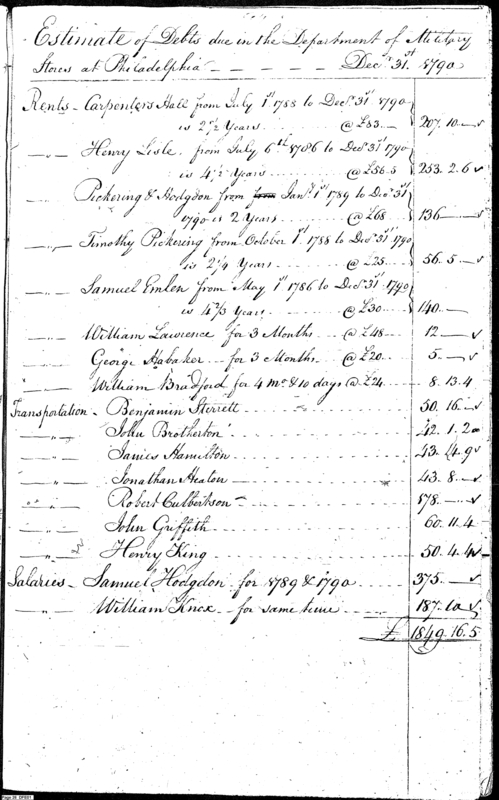 Estimate of Debts due in the Department of Military
Stores at Philadelphia — — — — Decr. 31st. 1790
Rents - Carpenters Hall from July 1st 1788 to Decr. 31st 1790
is 2 1/2 Years .... @ £83.— 207.10.—
—„— Henry Lisle from July 6th 1786 to Decr 31st 1790
is 4 1/2 Years .... @ £56.5 253.2.6
—„— Pickering & Hodgdon from Jany. 1st 1789 to Decr 31st
1790 is 2 Years .... @ £68 136.—
—„— Timothy Pickering from October 1st 1788 to Decr 31st 1790
is 2 1/4 Years .... @ £25 56.5.—
—„— Samuel Emlen from May 1st 1786 to Decr 31st 1790
is 4 2/3 Years .... @ £30 140.—
—„— William Lawrence for 3 Months .. @ £48 12.—
„ George Habaker for 3 Months .... @ £20 5.—
—„— William Bradford for 4 Mo. & 10 days @ £24 8.13.4
Transportation - Benjamin Sterrett 50.16.—
—„— John Brotherton 42.1.2
—„— James Hamilton 43.4.9
—„— Jonathan Heaton 43.8.—
„ Robert Culbertson 178.—
—„— John Griffith 60.11.4
—„— Henry King 50.4.4
Salaries - Samuel Hodgdon for 1789 & 1790 375.—
—„— William Knox for same time 187.10
£ 1849.16.5